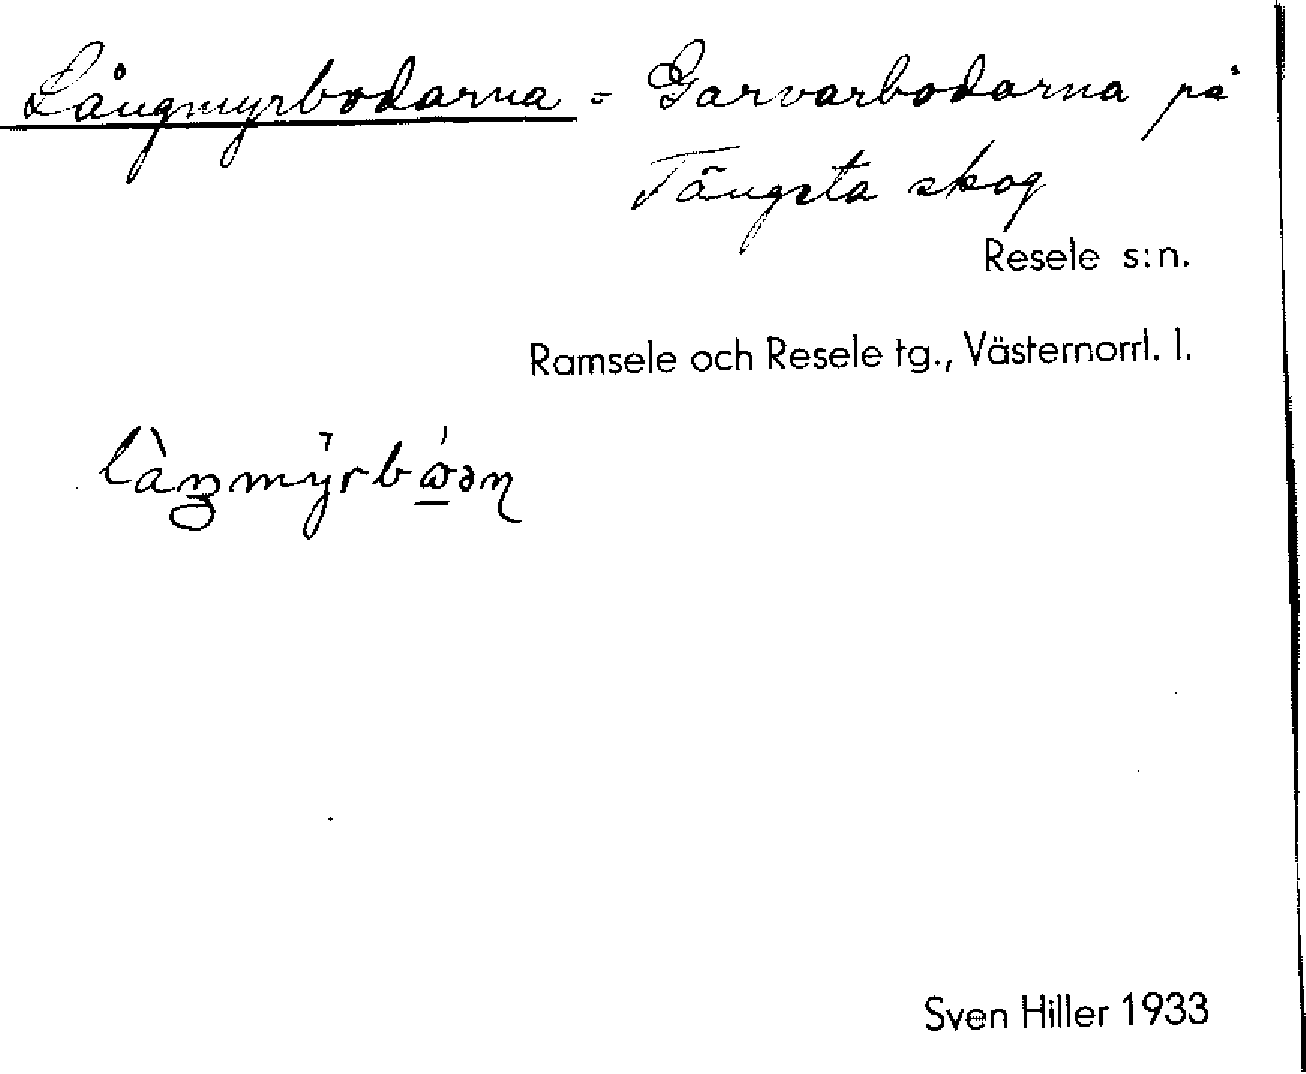 Långmyrbodarna = Garvarbodarna på
Tängsta skog
Resele s:n.
Ramsele och Resele tg., Västernorrl. l.
Sven Hiller 1933